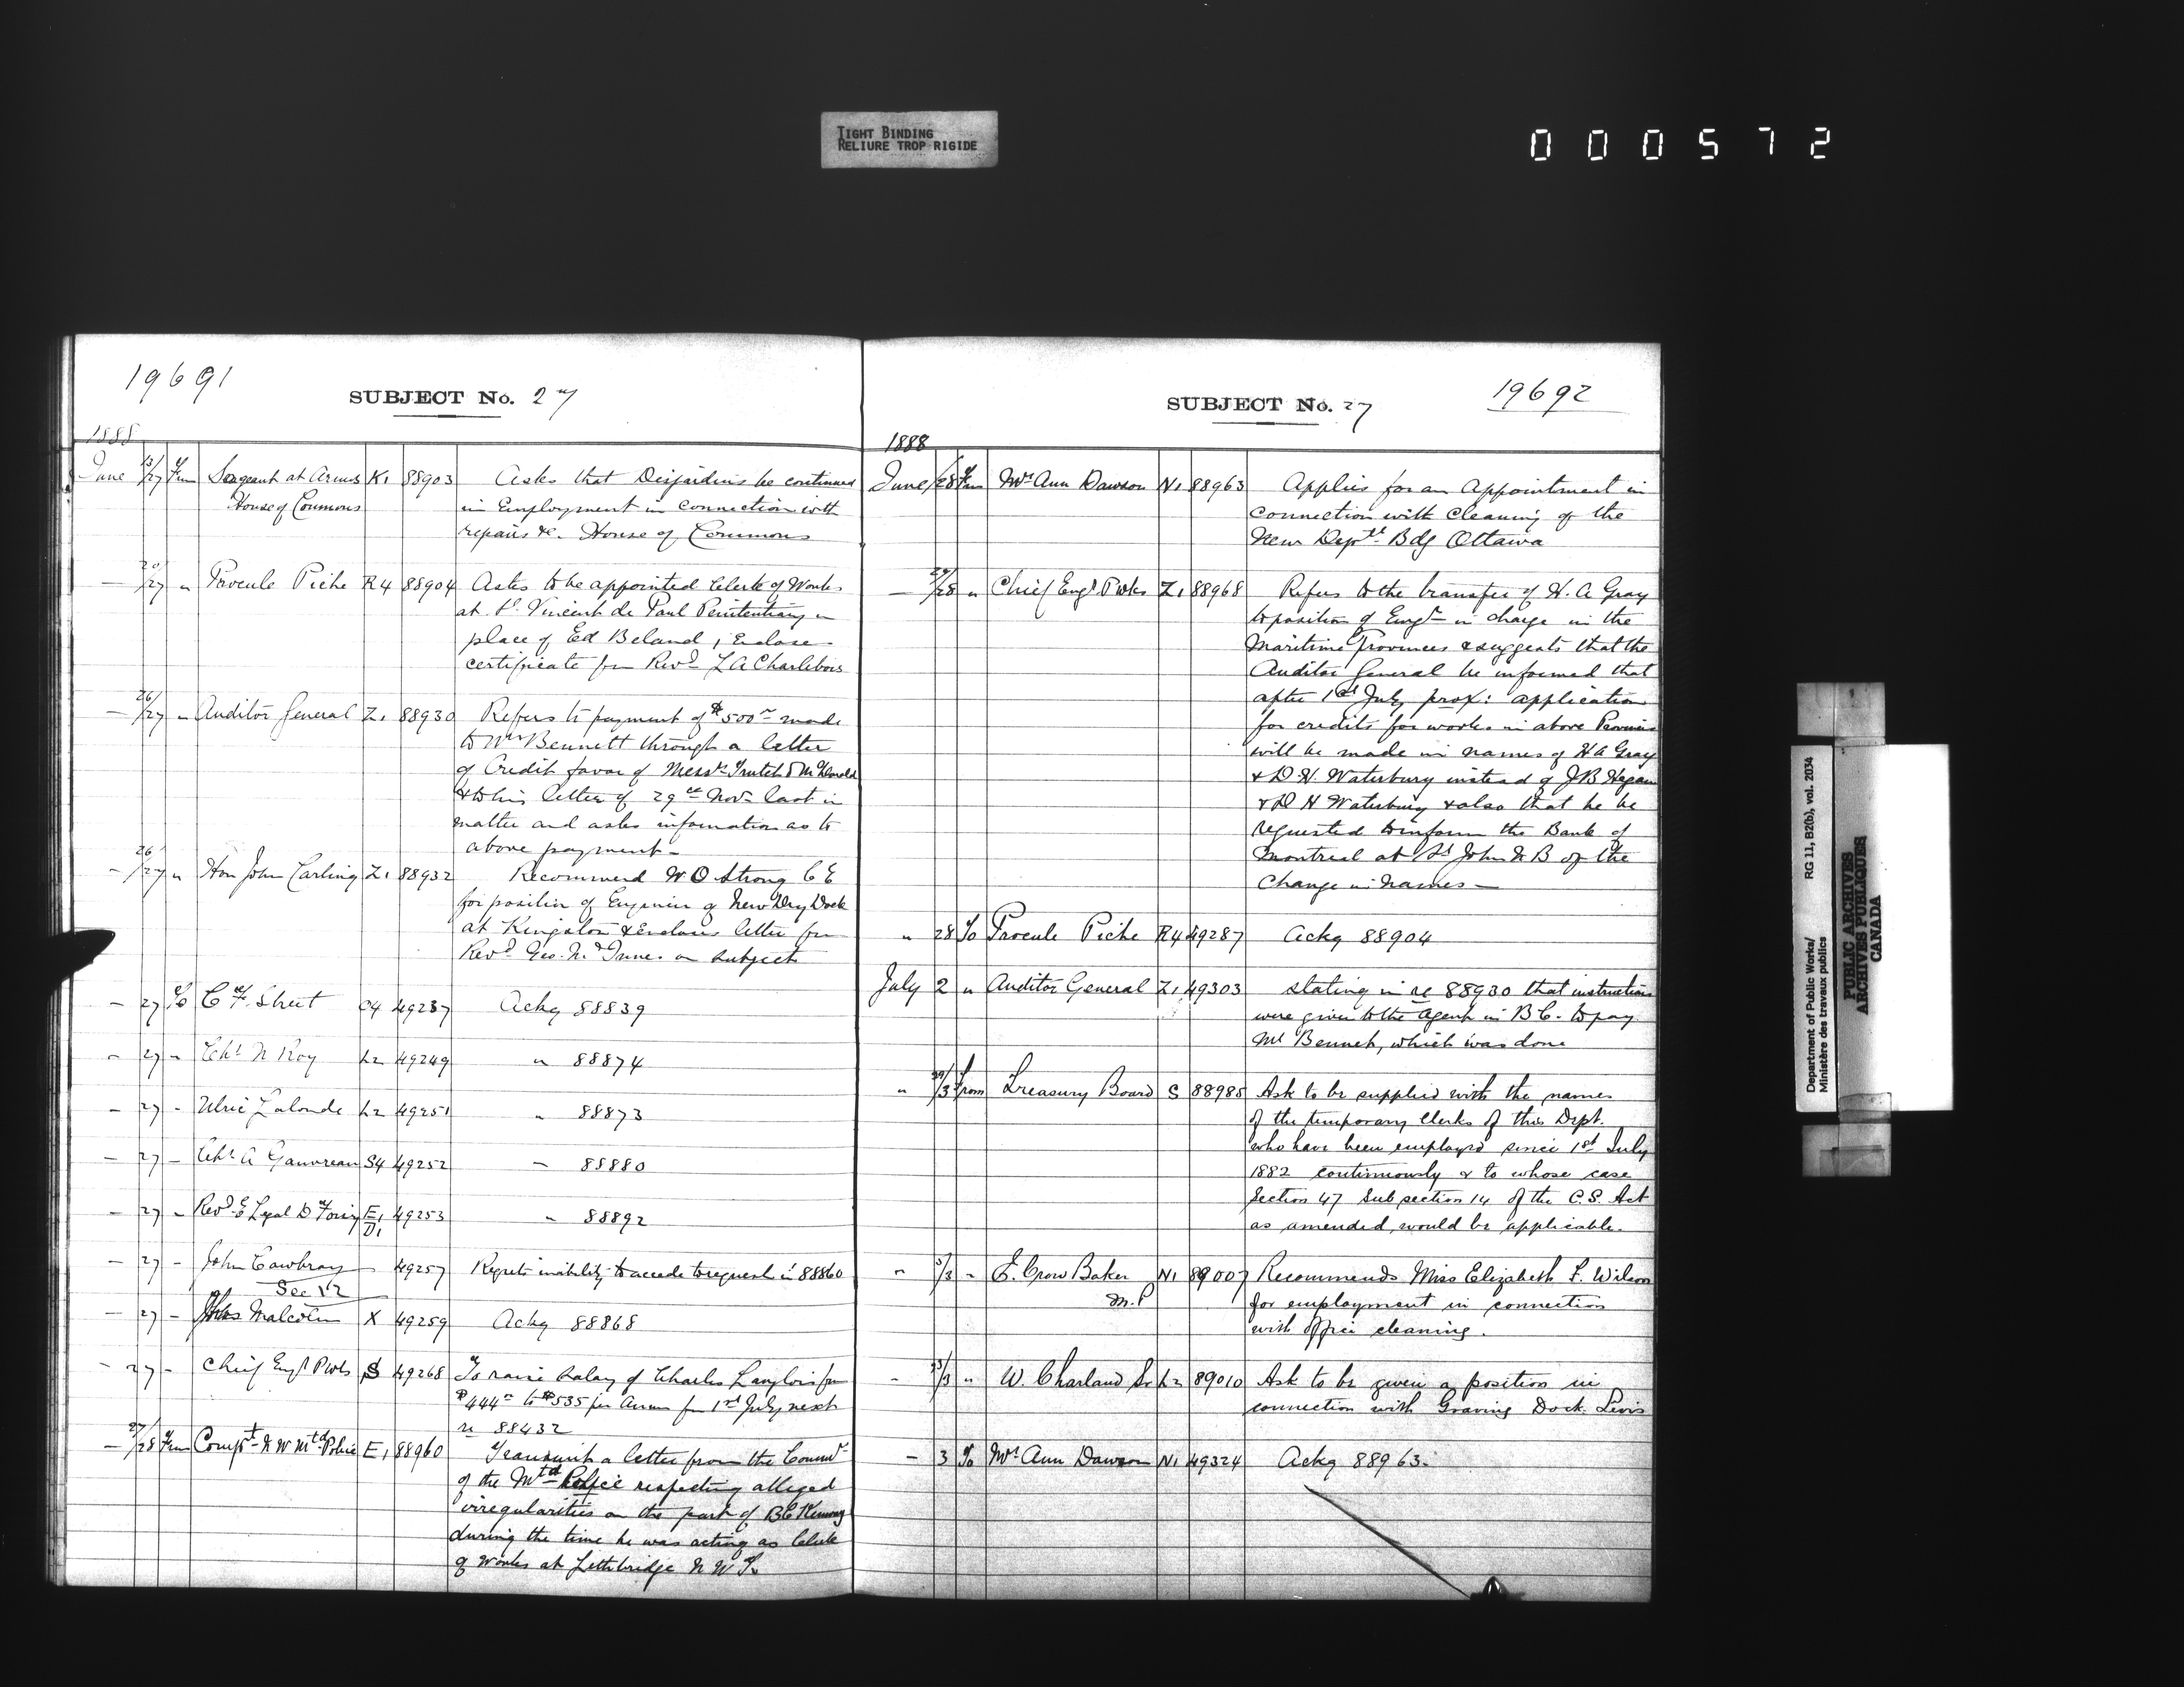 TIGHT BINDING
RELIURE TROP RIGIDE
000572
19691
SUBJECT No. 27
1888
June 23/27 From Sergeant at Arms K1 88903 Asks that Desjardins be continued
House of Commons in Employment in connection with
repairs &c. House of Commons
— 20/27 " Procule Piche R4 88904 Asks to be appointed Clerk of Works
at St. Vincent de Paul Penitentiary in
place of Ed Beland, Enclose
certificate fm Revd L A Charlebois
— 26/27 " Auditor General Z1 88930 Refers to payment of $500 made
to Wm Bennett through a letter
of Credit favor of Messrs Trutch &
& to his letter of 29th Novr last in
matter and asks information as to
above payment —
— 26/27 " Hon John Carling Z1 88932 Recommend W O Strong C E
for position of Engineer of New Dry Dock
at Kingston & Encloses letter fm
Revd Geo. on subject
— 27 To C F. Street C4 49237 Ackg 88839
— 27 " Chs N Roy L2 49249 " 88874
— 27 " Ulric Lalonde L2 49251 " 88873
— 27 — Chs A Gauvreau S4 49252 " 88880
— 27 " Revd E Legal E1 D1 49253 " 88892
— 27 — John Cawbray 49257 Regrets inability to accede to request in 88860
See 12
— 27 — Malcolm X 49259 Ackg 88868
— 27 — Chief Engr Pwks S 49268 To raise Salary of Charles Langlois fm
$444 to $535 per Annum fm 1st July next
re 88432
— 27/28 From Compt N W Mtd Police E1 88960 Transmit a letter from the Commr
of the Mtd Police respecting alleged
irregularities on the part of
during the time he was acting as Clerk
of Works at Lethbridge N W T.
SUBJECT No. 27
19692
1888
June /28 From Mrs Ann Dawson N1 88963 Applies for an Appointment in
connection with cleaning of the
New Deptl Bdg Ottawa
— 27/28 " Chief Engr Pwks Z1 88968 Refers to the transfer of H. A Gray
to position of Engr in charge in the
Maritime Provinces & suggests that the
Auditor General be informed that
after 1st July prox: application
for credits for works in above Provinces
will be made in names of H A Gray
& D. H. Waterbury instead of J B Hegan
& D H Waterbury & also that he be
requested to inform the Bank of
Montreal at St John N B of the
Change in Names —
" 28 To Procule Piche R4 49287 Ackg 88904
July 2 " Auditor General Z1 49303 Stating in re 88930 that instructions
were given to the Agent in B C. to pay
Mr Bennet, which was done
" 30/3 From Treasury Board S 88985 Ask to be supplied with the names
of the temporary Clerks of this Dept.
who have been employed since 1st July
1882 continuously & to whose case
Section 47 Sub section 14 of the C. S. Act
as amended, would be applicable.
" 3/3 " E. Crow Baker N1 89007 Recommends Miss Elizabeth F. Wilson
M. P for employment in connection
with office cleaning.
— 23/3 " W. Charland Sr L2 89010 Ask to be given a position in
connection with Graving Dock. Levis
— 3 To Mrs Ann Dawson N1 49324 Ackg 88963.
Department of Public Works/ RG 11, B2(b), vol. 2034
Ministère des travaux publics
PUBLIC ARCHIVES
ARCHIVES PUBLIQUES
CANADA